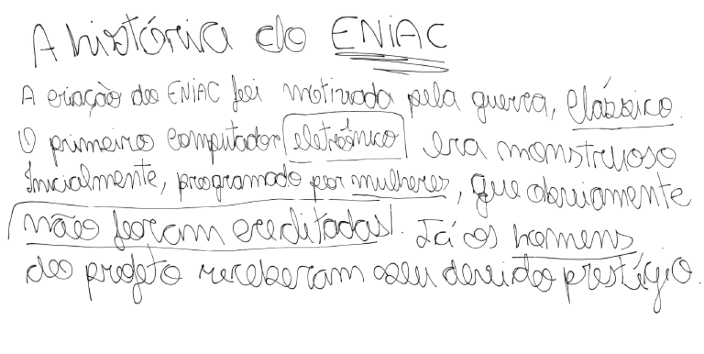 A história do ENIAC
A criação do ENIAC foi motivada pela guerra, clássico.
O primeiro computador eletrônico era monstruoso
Inicialmente, programado por mulheres, que obviamente
não foram creditadas. Já os homens
do projeto receberam seu devido prestígio.